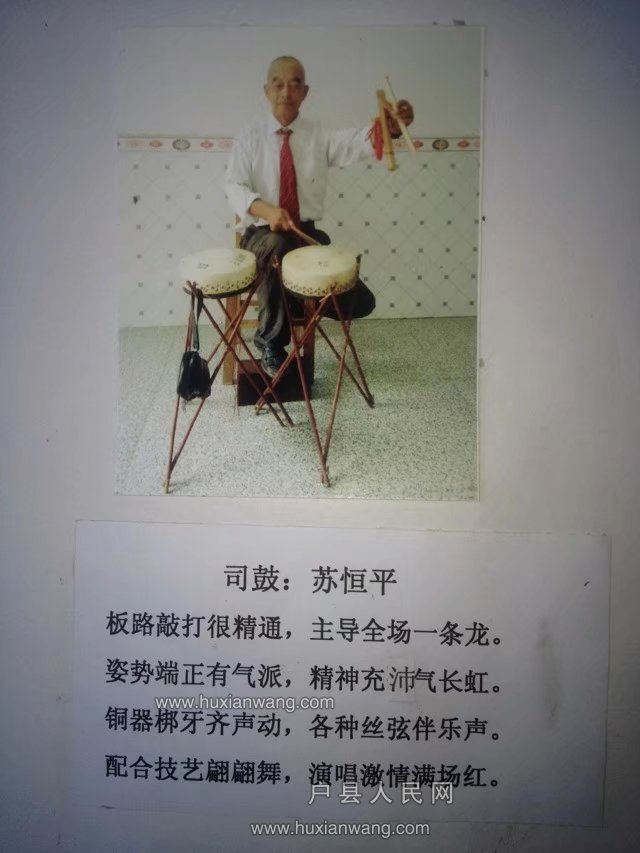 司鼓：苏恒平
板路敲打很精通，主导全场一条龙。
姿势端正有气派，精神充沛气长虹。
www.huxianwang.com
铜器梆牙齐声动，各种丝弦伴乐声。
配合技艺翩翩舞，演唱激情满场红。
户县人民网
www.huxianwang.com